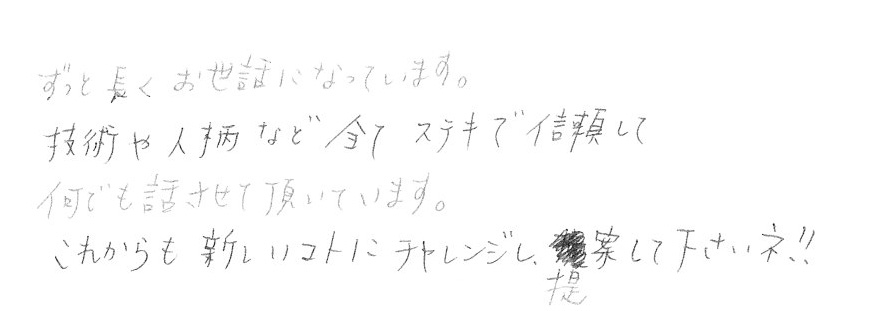 ずっと長くお世話になっています。
技術や人柄など全てステキで信頼して
何でも話させて頂いています。
これからも新しいコトにチャレンジし、提案して下さいネ!!